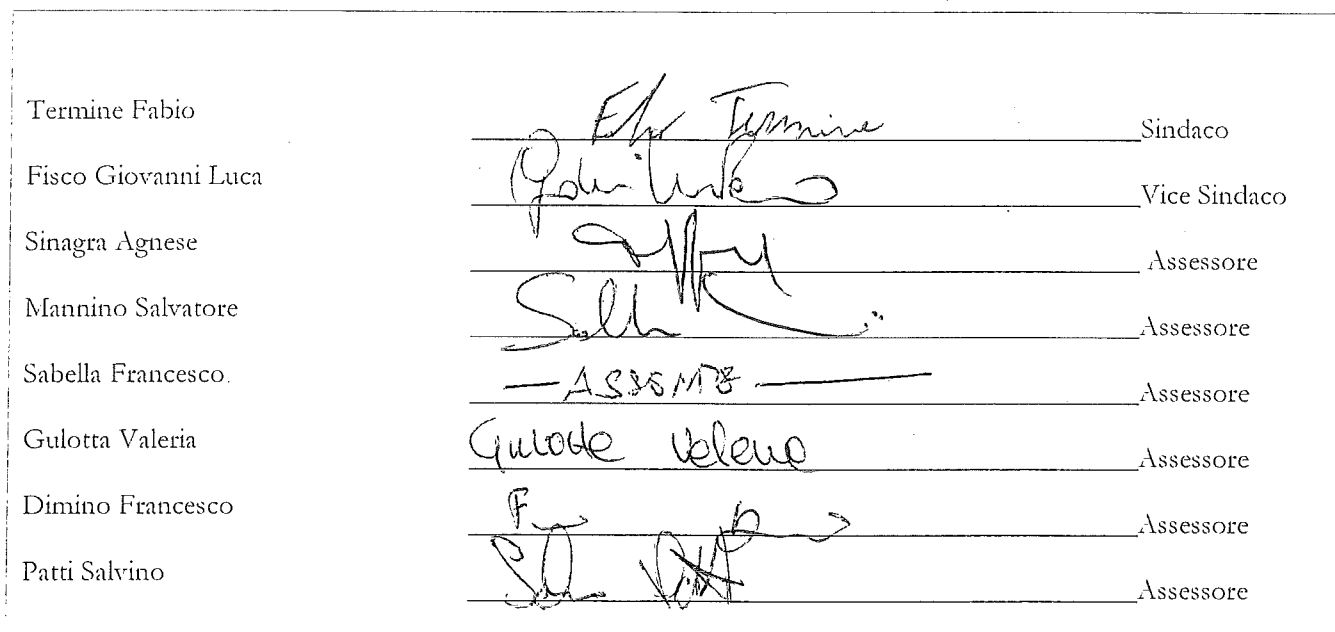 Termine Fabio Termine Sindaco
Fisco Giovanni Luca Vice Sindaco
Sinagra Agnese Assessore
Mannino Salvatore Assessore
Sabella Francesco. — ASSENTE — Assessore
Gulotta Valeria Gulotta Valeria Assessore
Dimino Francesco Assessore
Patti Salvino Assessore